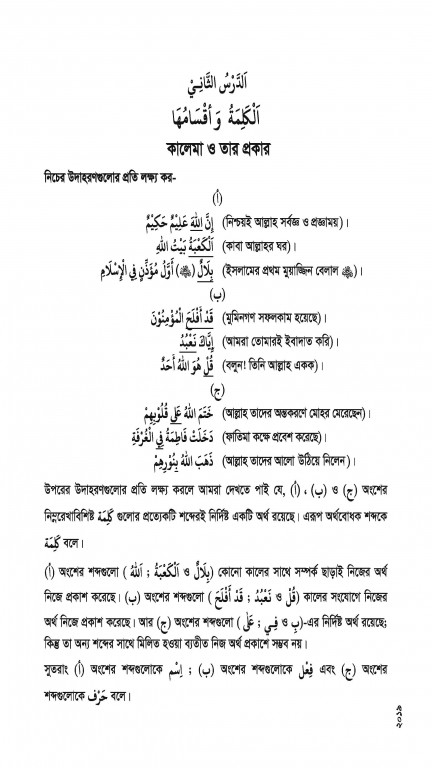 اَلدَّرْسُ الثَّانِيْ
اَلْكَلِمَةُ وَأَقْسَامُهَا
কালেমা ও তার প্রকার
নিচের উদাহরণগুলোর প্রতি লক্ষ্য কর-
(أ)
إِنَّ اللهَ عَلِيْمٌ حَكِيْمٌ (নিশ্চয়ই আল্লাহ সর্বজ্ঞ ও প্রজ্ঞাময়)।
اَلْكَعْبَةُ بَيْتُ اللهِ (কাবা আল্লাহর ঘর)।
بِلَالٌ (ﷺ) أَوَّلُ مُؤَذِّنٍ فِي الْإِسْلَامِ (ইসলামের প্রথম মুয়াজ্জিন বেলাল ﷺ)।
(ب)
قَدْ أَفْلَحَ الْمُؤْمِنُوْنَ (মুমিনগণ সফলকাম হয়েছে)।
إِيَّاكَ نَعْبُدُ (আমরা তোমারই ইবাদাত করি)।
قُلْ هُوَ اللهُ أَحَدٌ (বলুন! তিনি আল্লাহ একক)।
(ج)
خَتَمَ اللهُ عَلٰى قُلُوْبِهِمْ (আল্লাহ তাদের অন্তকরণে মোহর মেরেছেন)।
دَخَلَتْ فَاطِمَةُ فِي الْغُرْفَةِ (ফাতিমা কক্ষে প্রবেশ করেছে)।
ذَهَبَ اللهُ بِنُوْرِهِمْ (আল্লাহ তাদের আলো উঠিয়ে নিলেন)।
উপরের উদাহরণগুলোর প্রতি লক্ষ্য করলে আমরা দেখতে পাই যে, (أ) ، (ب) ও (ج) অংশের
নিম্নরেখাবিশিষ্ট كَلِمَة গুলোর প্রত্যেকটি শব্দেরই নির্দিষ্ট একটি অর্থ রয়েছে। এরূপ অর্থবোধক শব্দকে
كَلِمَة বলে।
(أ) অংশের শব্দগুলো (اَللهُ ; اَلْكَعْبَةُ ও بِلَالٌ) কোনো কালের সাথে সম্পর্ক ছাড়াই নিজের অর্থ
নিজে প্রকাশ করেছে। (ب) অংশের শব্দগুলো (قَدْ أَفْلَحَ ; نَعْبُدُ ও قُلْ) কালের সংযোগে নিজের
অর্থ নিজে প্রকাশ করেছে। আর (ج) অংশের শব্দগুলো (عَلٰى ; فِيْ ও بِ)-এর নির্দিষ্ট অর্থ রয়েছে;
কিন্তু তা অন্য শব্দের সাথে মিলিত হওয়া ব্যতীত নিজ অর্থ প্রকাশে সম্ভব নয়।
সুতরাং (أ) অংশের শব্দগুলোকে اِسْم ; (ب) অংশের শব্দগুলোকে فِعْل এবং (ج) অংশের
শব্দগুলোকে حَرْف বলে।
২০১৯